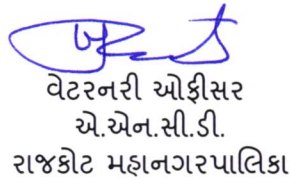 વેટરનરી ઓફીસર
એ.એન.સી.ડી.
રાજકોટ મહાનગરપાલિકા